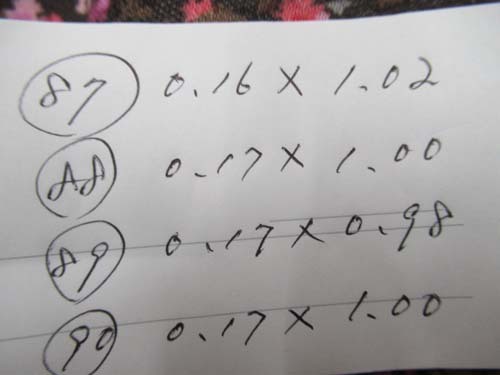 87 0.16 × 1.02
88 0.17 × 1.00
89 0.17 × 0.98
90 0.17 × 1.00